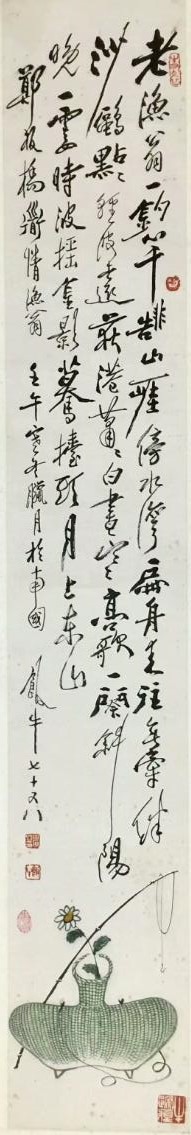 老漁翁一釣竿靠山崖傍水灣扁舟來往無牽絆
沙鷗點點輕波遠荻港蕭蕭白晝寒高歌一闋斜陽
晚一霎時波搖金影驀擡頭月上東山
鄭板橋道情漁翁 壬午寒冬臘月於南國 牛七十又八